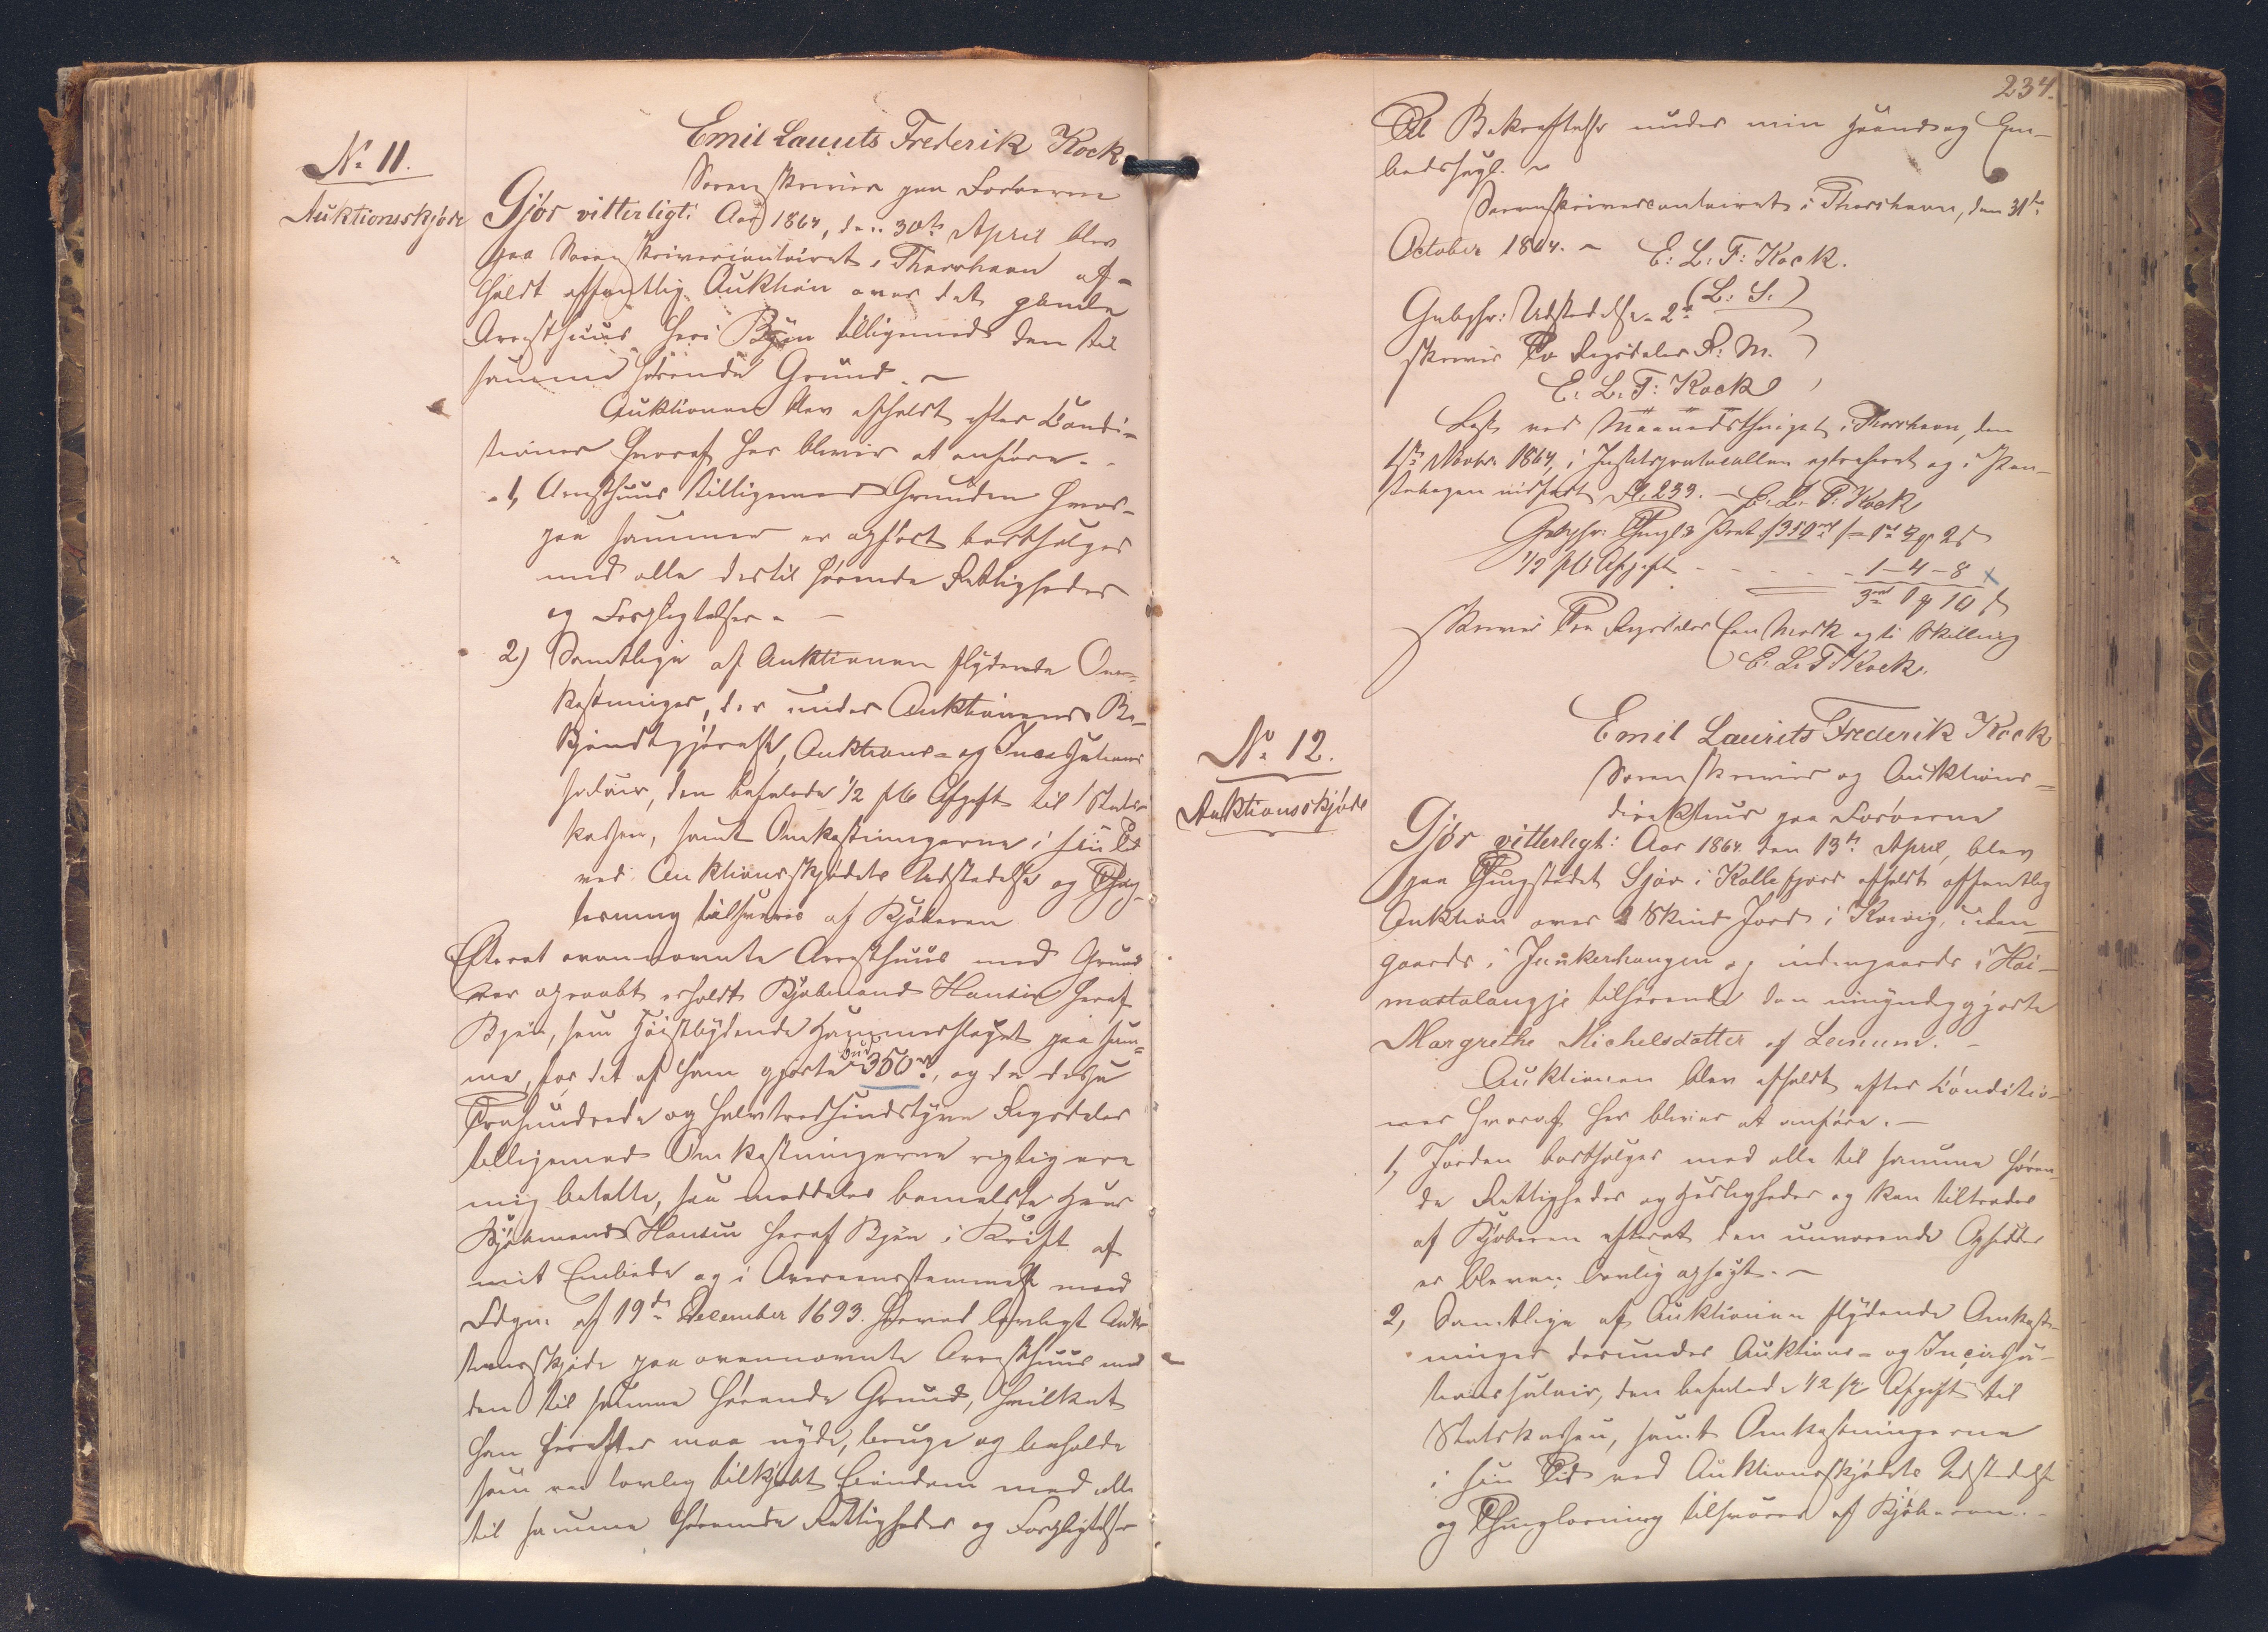 No 11.
Auktionsskjøde
Emil Laurits Frederik Kock
Sorenskriver paa Færøerne
Gjør vitterligt: Aar 1864, den 30te April blev
paa Sorenskrivercontoiret i Thorshavn af-
holdt offentlig Auktion over det gamle
Arresthuus her i Byen tilligemed den til
samme hørende Grund. ~
Auktionen blev afholdt efter Condi-
tioner hvoraf her bliver at anføre.
1, Arresthuus tilligemed Grunden hvor-
paa samme er opført bortsælges
med alle dertil hørende Rettigheder
og Forpligtelser. —
2) Samtlige af Auktionen flydende Om-
kostninger, derunder Auktionens Be-
kjendtgjørelse, Auktions- og Incassations
salair, den befalede 1/2 pCt Afgift til Stats-
kassen, samt Omkostningerne i sin Tid
ved Auktionsskjødets Udstedelse og Thing-
læsning tilsvares af Kjøberen
Efterat ovennævnte Arresthuus med Grund
var opraabt erholdt Kjøbmand Hansen heraf
Byen, som Høistbydende Hammerslaget paa sam-
me, for det af ham gjorte Bud 350 rd, og da disse
Trehundrede og halvtredsindstyve Rigsdaler
tilligemed Omkostningerne rigtig ere
mig betalte, saa meddeles bemeldte Herr
Kjøbmand Hansen heraf Byen i Kraft af
mit Embede og i Overeensstemmelse med
Fdgn. af 19de December 1693. herved lovligt Auk-
tionsskjøde paa ovennævnte Arresthuus med
den til samme hørende Grund, hvilket
han herefter maa nyde, bruge og beholde
som en lovlig tilkjøbt Eiendom med alle
til samme hørende Rettigheder og Forpligtelser
234.
Til Bekræftelse under min Haand og Em-
bedssegl. ~
Sorenskrivercontoiret i Thorshavn, den 31te
October 1864. ~ E: L: F: Kock.
(L: S.)
Gebyhr: Udstedelse - 2rd
skriver To Rigsdaler R: M.
E. L. F: Kock
Læst ved Maanedsthinget i Thorshavn, den
1ste Novbr. 1864, i Justitsprotocollen extraheret og i Pan-
tebogen indført Fol. 233. — E. L. F. Kock
Gebyhr: Thingl. & Prot. /350rd/ = 1rd 3 ₰ 2 s
1/2 pCt Afgift - - - - - 1 — 4 — 8
3rd 1 ₰ 10 s
skriver Tre Rigsdaler Een Mark og ti Skilling
E. L. F Kock.
No 12.
Auktionsskjøde
Emil Laurits Frederik Kock
Sorenskriver og Auktions-
direkteur paa Færøerne
Gjør vitterligt: Aar 1864 den 13te April, blev
paa Thingstedet Sjov i Kollefjord afholdt offentlig
Auktion over 2 Skind Jord i Kvivig, uden-
gaards i Junkerhaugen og indengaards i Hei-
mastalangje tilhørende den umyndiggjorte
Margrethe Michelsdatter af Leinum. —
Auktionen blev afholdt efter Conditio-
ner hvoraf her bliver at anføre. —
1, Jorden bortsælges med alle til samme høren-
de Rettigheder og Herligheder og kan tiltrædes
af Kjøberen efterat den nuværende Opsidder
er bleven lovlig opsagt. ~
2, Samtlige af Auktionen flydende Omkost-
ninger derunder Auktions- og Incassa-
tionssalair, den befalede 1/2 pCt Afgift til
Statskassen, samt Omkostningerne
i sin Tid ved Auktionsskjødets Udstedelse
og Thinglæsning tilsvares af Kjøberen. -